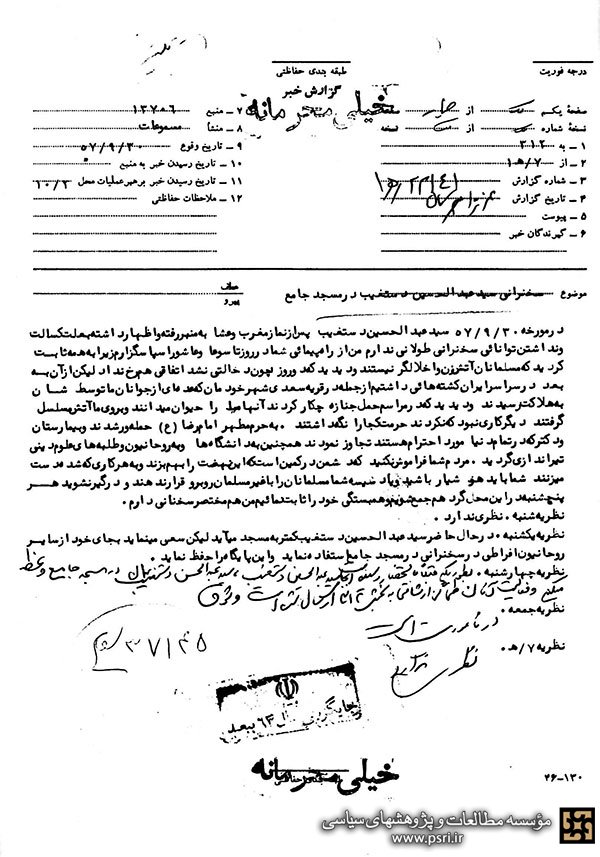 درجه فوریت
طبقه بندی حفاظتی
گزارش خبر
خیلی محرمانه
صفحهٔ یکم از چهار صفحه
نسخهٔ شماره از نسخه
۱ ـ به ۳۱۲
۲ ـ از ۷/ ه ۱
۳ ـ شماره گزارش
۴ ـ تاریخ گزارش
۵ ـ پیوست
۶ ـ گیرندگان خبر
۷ ـ منبع ۱۳۷۰۶
۸ ـ منشأ مسموعات
۹ ـ تاریخ وقوع ۵۷/۹/۳۰
۱۰ ـ تاریخ رسیدن خبر به منبع
۱۱ ـ تاریخ رسیدن خبر برهبر عملیات محل ۱۰/۳
۱۲ ـ ملاحظات حفاظتی
موضوع سخنرانی سید عبدالحسین دستغیب در مسجد جامع
عطف
پیرو
در مورخه ۵۷/۹/۳۰ سید عبدالحسین دستغیب پس از نماز مغرب و عشا به منبر رفته و اظهار داشته بعلت کسالت
و نداشتن توانائی سخنرانی طولانی ندارم من از راهپیمائی شما در روز تاسوعا و عاشورا سپاسگزارم زیرا به همه ثابت
کردید که مسلمانان آتش‌زن و اخلالگر نیستند و دیدید که دو روز چون دخالتی نشد اتفاقی هم رخ نداد لیکن از آن به
بعد در سراسر ایران کشته‌هائی داشتیم از جمله در قریه سعدی شهر خودمان که عده‌ای از جوانان ما توسط شان
به هلاکت رسیدند و دیدید که در مراسم حمل جنازه چکار کردند آنها مارا حیوان میدانند و بروی ما آتش مسلسل
گرفتند دیگر کاری نبود که نکردند حرمت کجا را نگه داشتند. به حرم مطهر امام رضا (ع) حمله‌ور شدند و بیمارستان
و دکتر که در تمام دنیا مورد احترام هستند تجاوز نمودند همچنین به دانشگاه‌ها و به روحانیون و طلبه‌های علوم دینی
تیراندازی گردید. مردم شما فراموش نکنید که دشمن در کمین است که این نهضت را بهم بزند و به هر کاری که شد دست
میزنند شما باید هوشیار باشید زیاد دسیسه شما مسلمانان را با غیر مسلمان روبرو قرار ندهند و درگیر نشوید هر
پنجشنبه در این محل گرد هم جمع شویم و همبستگی خود را ثابت نمائیم من هم مختصر سخنانی دارم.
نظریه شنبه . نظری ندارد .
نظریه یکشنبه . در حال حاضر سید عبدالحسین دستغیب کمتر به مسجد میآید لیکن سعی مینماید بجای خود از سایر
روحانیون افراطی در سخنرانی در مسجد جامع استفاده نماید و این پایگاه را حفظ نماید .
نظریه چهارشنبه .
نظریه جمعه .
نظریه ۷/ ه .
۳۷۱۴۵
خیلی محرمانه
طبقه بندی حفاظتی
۴۶-۱۳۰
مؤسسه مطالعات و پژوهشهای سیاسی
www.psri.ir